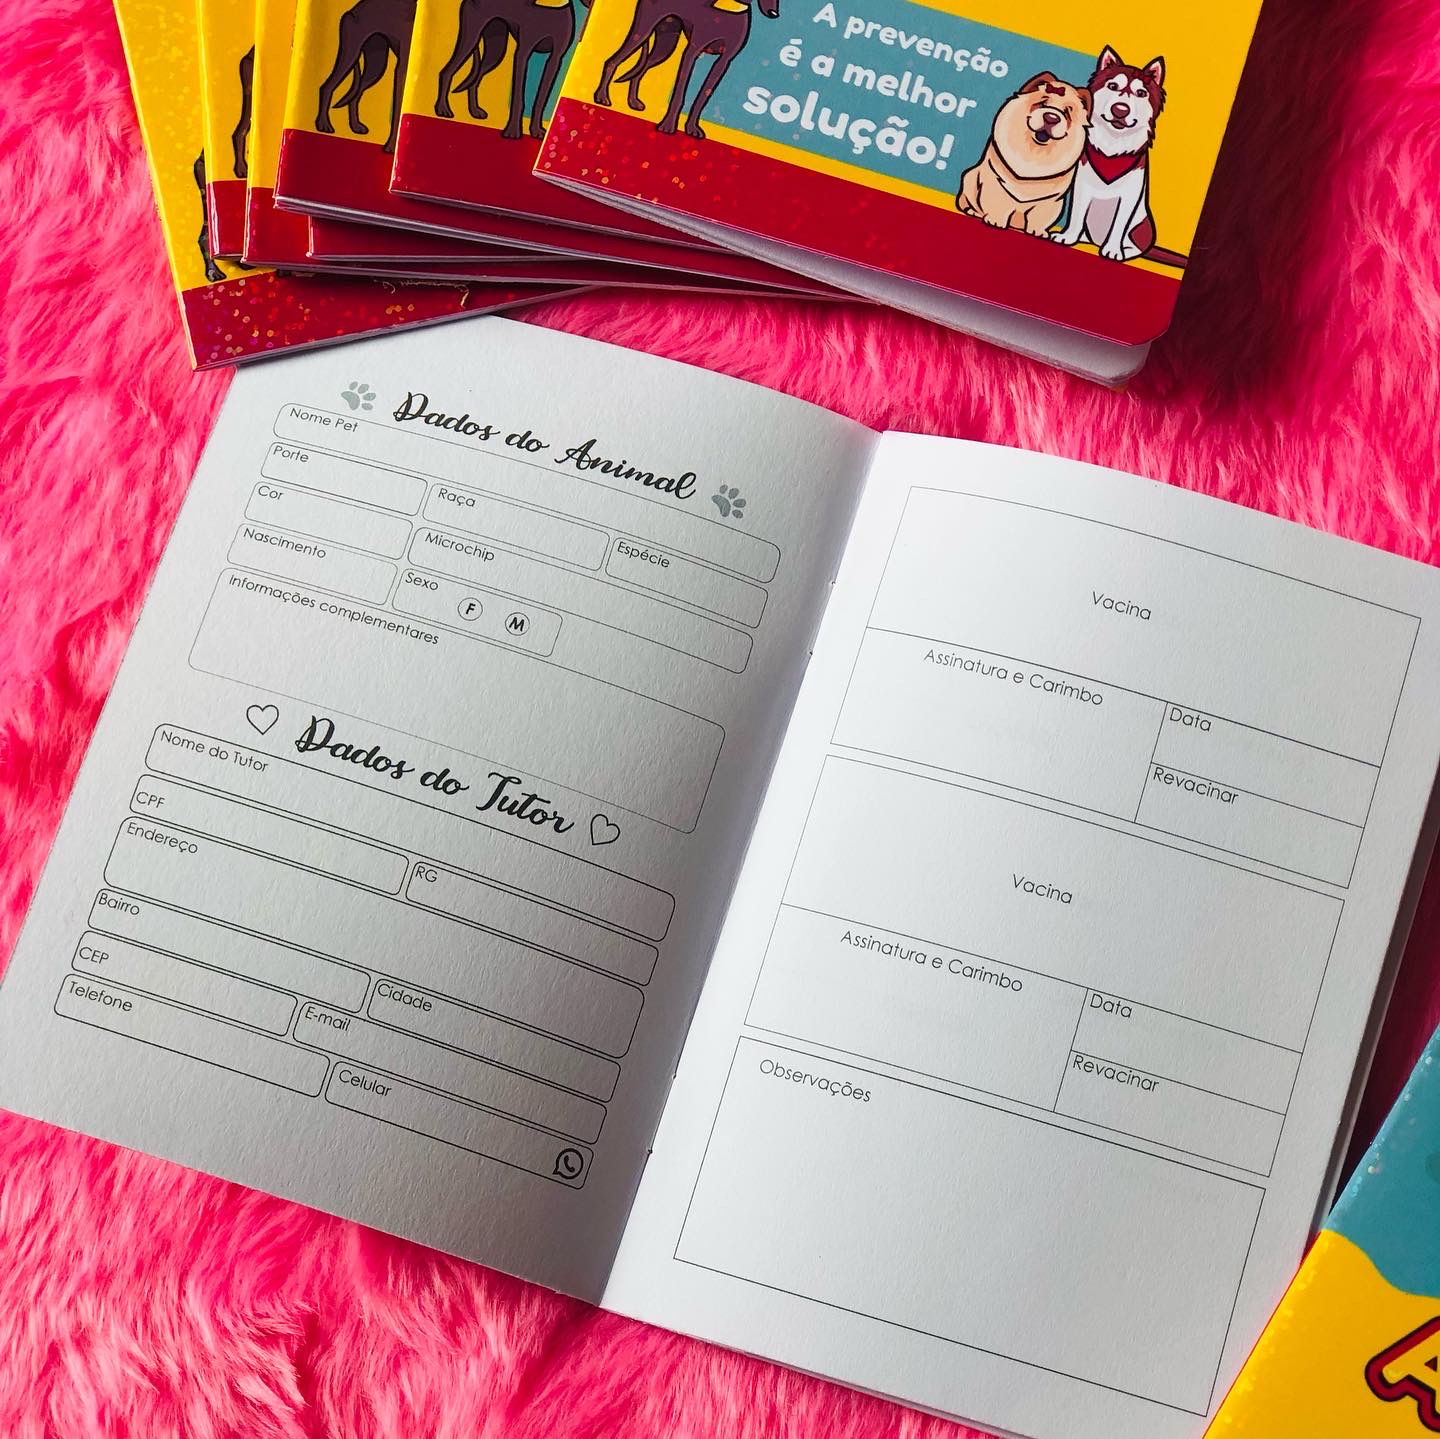 A prevenção
é a melhor
solução!
Dados do Animal
Nome Pet
Porte
Raça
Espécie
Cor
Microchip
Nascimento
Sexo
F
M
Informações complementares
Dados do Tutor
Nome do Tutor
CPF
RG
Endereço
Bairro
Cidade
CEP
E-mail
Telefone
Celular
Vacina
Assinatura e Carimbo
Data
Revacinar
Vacina
Assinatura e Carimbo
Data
Revacinar
Observações
A